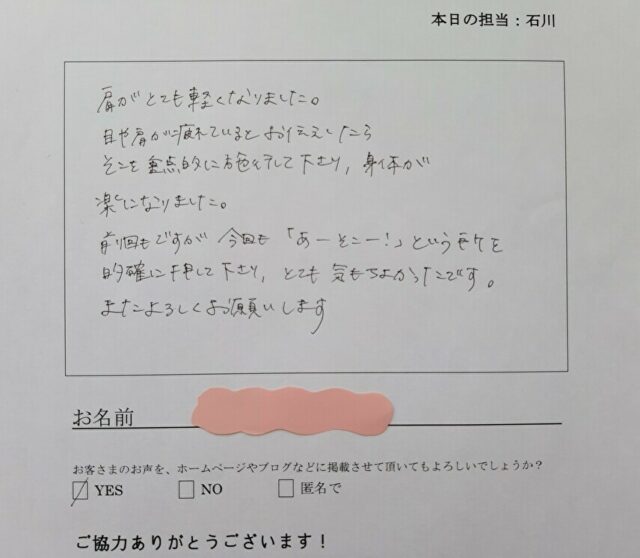 本日の担当：石川
肩がとても軽くなりました。
目や肩が疲れているとお伝えしたら
そこを重点的に施術して下さり、身体が
楽になりました。
前回もですが今回も「あーそこー！」という所を
的確に押して下さり、とても気もちよかったです。
またよろしくお願いします
お名前
お客さまのお声を、ホームページやブログなどに掲載させて頂いてもよろしいでしょうか？
YES NO 匿名で
ご協力ありがとうございます！